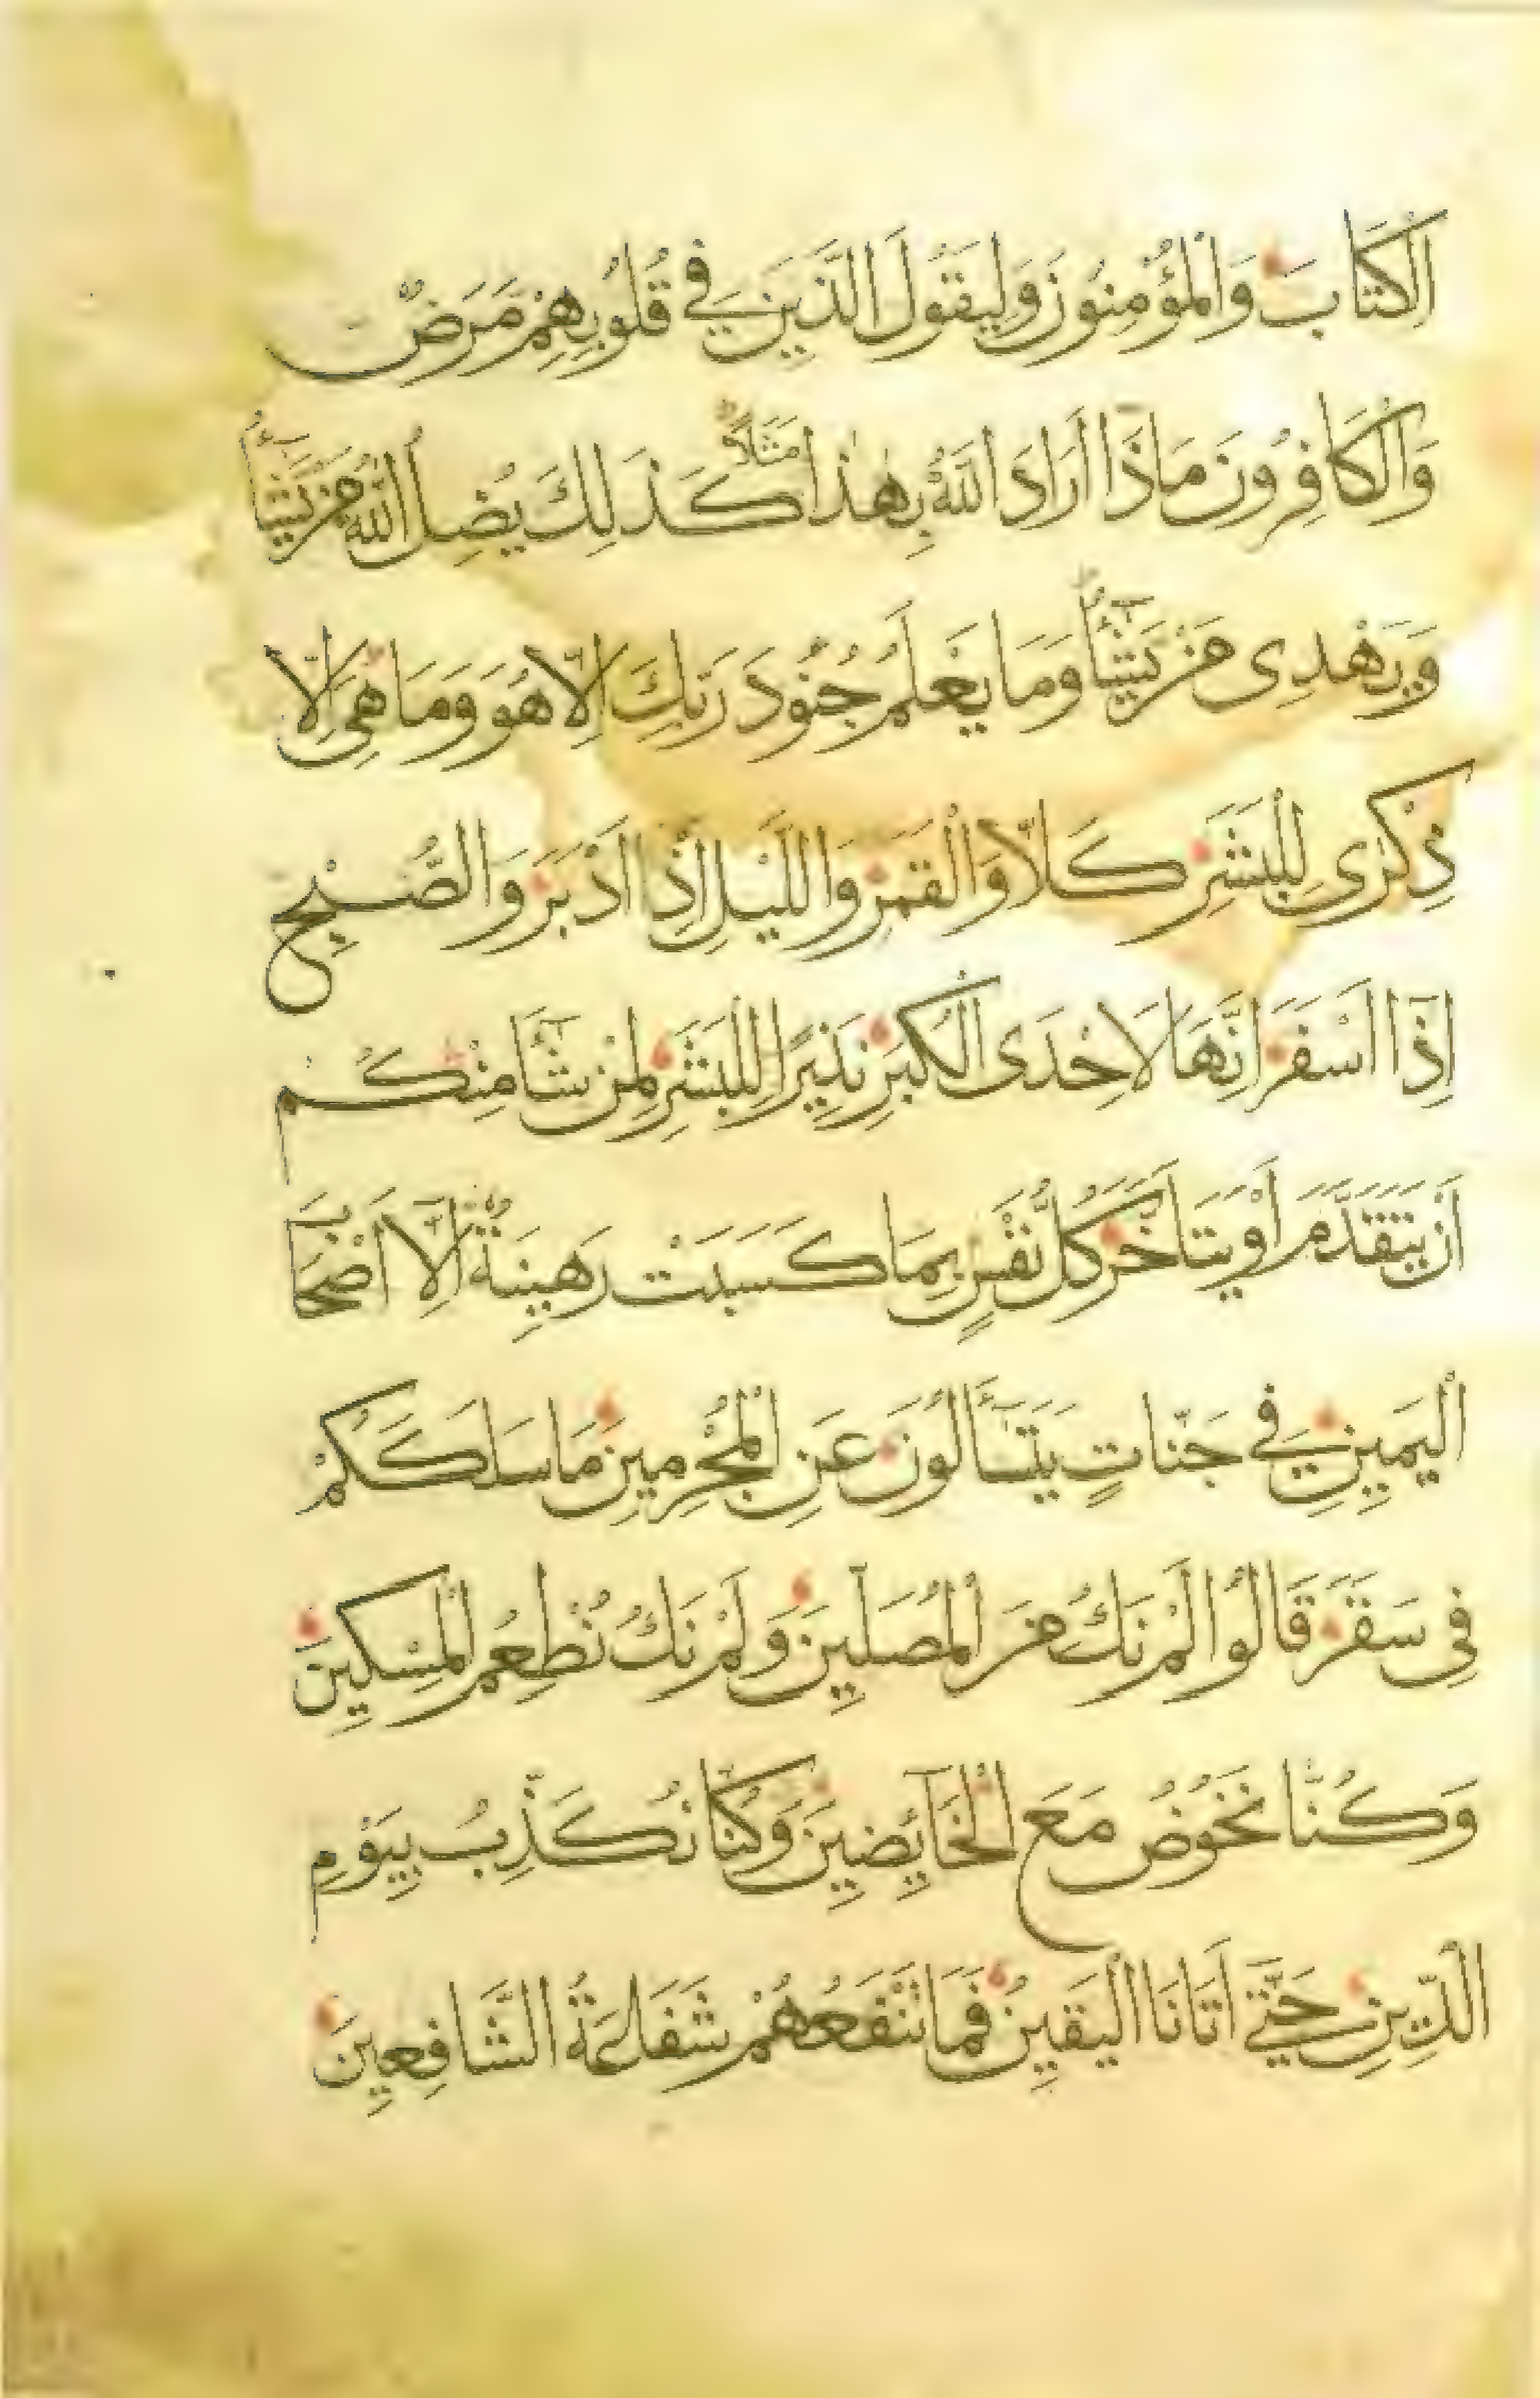 اَلْكِتَابَ وَالْمُؤْمِنُونَ وَلِيَقُولَ الَّذِينَ فِي قُلُوبِهِمْ مَرَضٌ
وَالْكَافِرُونَ مَاذَا أَرَادَ اللَّهُ بِهَذَا مَثَلًا كَذَلِكَ يُضِلُّ اللَّهُ مَنْ يَشَاءُ
وَيَهْدِي مَنْ يَشَاءُ وَمَا يَعْلَمُ جُنُودَ رَبِّكَ إِلَّا هُوَ وَمَا هِيَ إِلَّا
ذِكْرَى لِلْبَشَرِ كَلَّا وَالْقَمَرِ وَاللَّيْلِ إِذْ أَدْبَرَ وَالصُّبْحِ
إِذَا أَسْفَرَ إِنَّهَا لَإِحْدَى الْكُبَرِ نَذِيرًا لِلْبَشَرِ لِمَنْ شَاءَ مِنْكُمْ
أَنْ يَتَقَدَّمَ أَوْ يَتَأَخَّرَ كُلُّ نَفْسٍ بِمَا كَسَبَتْ رَهِينَةٌ إِلَّا أَصْحَابَ
الْيَمِينِ فِي جَنَّاتٍ يَتَسَاءَلُونَ عَنِ الْمُجْرِمِينَ مَا سَلَكَكُمْ
فِي سَقَرَ قَالُوا لَمْ نَكُ مِنَ الْمُصَلِّينَ وَلَمْ نَكُ نُطْعِمُ الْمِسْكِينَ
وَكُنَّا نَخُوضُ مَعَ الْخَائِضِينَ وَكُنَّا نُكَذِّبُ بِيَوْمِ
الدِّينِ حَتَّى أَتَانَا الْيَقِينُ فَمَا تَنْفَعُهُمْ شَفَاعَةُ الشَّافِعِينَ